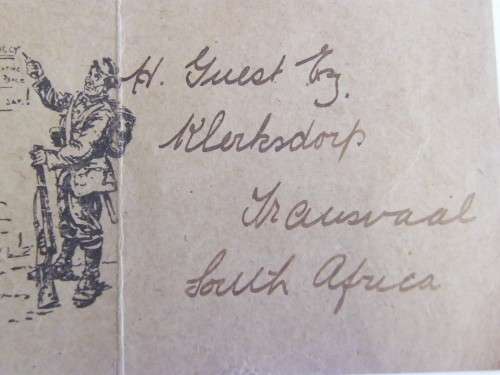 H. Guest Esq.
Klerksdorp
Transvaal
South Africa